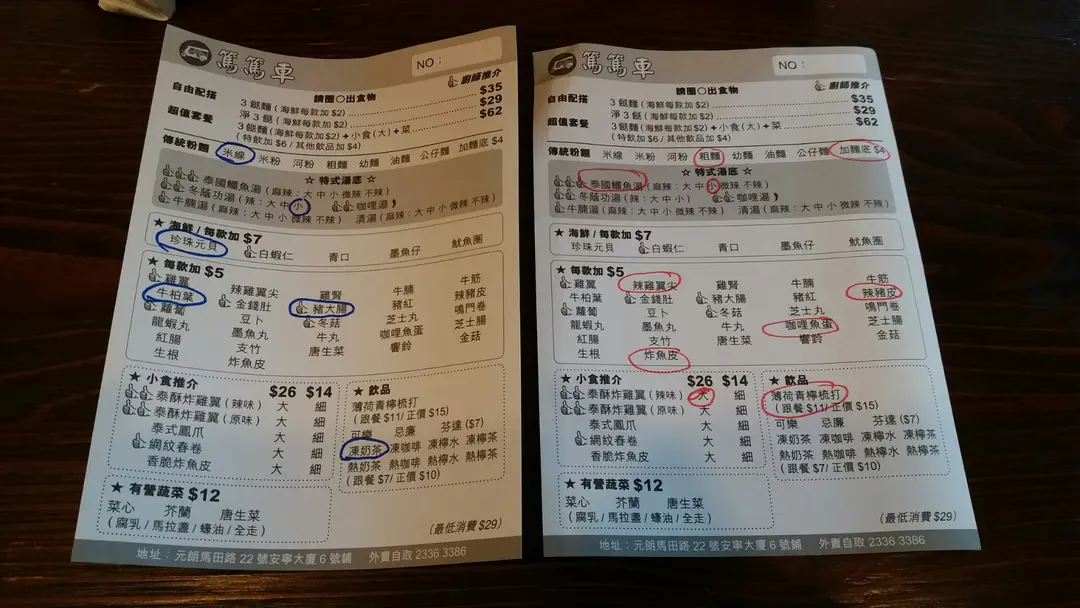 篤篤車
NO：
請圈○出食物
廚師推介
自由配搭
3 餸麵 ( 海鮮每款加 $2 ) $35
淨 3 餸 ( 海鮮每款加 $2 ) $29
超值套餐
3餸麵 (海鮮每款加$2) + 小食 (大) + 菜 $62
( 特飲加 $6 / 其他飲品加 $4 )
傳統粉麵 米線 米粉 河粉 粗麵 幼麵 油麵 公仔麵 加麵底 $4
☆ 特式湯底
泰國鱷魚湯 ( 麻辣：大 中 小 微辣 不辣 )
冬蔭功湯 ( 辣：大 中 小 ) 咖喱湯
牛腩湯 ( 麻辣：大 中 小 微辣 不辣 ) 清湯 ( 麻辣：大 中 小 微辣 不辣 )
★ 海鮮 / 每款加 $7
珍珠元貝 白蝦仁 青口 墨魚仔 魷魚圈
★ 每款加 $5
雞翼 辣雞翼尖 雞腎 牛腩 牛筋
牛柏葉 金錢肚 豬大腸 豬紅 辣豬皮
蘿蔔 豆卜 冬菇 芝士丸 鳴門卷
龍蝦丸 墨魚丸 牛丸 咖哩魚蛋 芝士腸
紅腸 支竹 唐生菜 響鈴 金菇
生根 炸魚皮
★ 小食推介 $26 $14
泰酥炸雞翼 ( 辣味 ) 大 細
泰酥炸雞翼 ( 原味 ) 大 細
泰式鳳爪 大 細
網紋春卷 大 細
香脆炸魚皮 大 細
★ 飲品
薄荷青檸梳打
( 跟餐 $11/ 正價 $15 )
可樂 忌廉 芬達 ($7)
凍奶茶 凍咖啡 凍檸水 凍檸茶
熱奶茶 熱咖啡 熱檸水 熱檸茶
( 跟餐 $7/ 正價 $10 )
★ 有營蔬菜 $12
菜心 芥蘭 唐生菜
( 腐乳 / 馬拉盞 / 蠔油 / 全走 )
(最低消費 $29)
地址：元朗馬田路 22 號安寧大廈 6 號鋪 外賣自取 2336 3386
篤篤車
NO：
請圈○出食物
廚師推介
自由配搭
3 餸麵 ( 海鮮每款加 $2 ) $35
淨 3 餸 ( 海鮮每款加 $2 ) $29
超值套餐
3餸麵 (海鮮每款加$2) + 小食 (大) + 菜 $62
( 特飲加 $6 / 其他飲品加 $4 )
傳統粉麵 米線 米粉 河粉 粗麵 幼麵 油麵 公仔麵 加麵底 $4
☆ 特式湯底
泰國鱷魚湯 ( 麻辣：大 中 小 微辣 不辣 )
冬蔭功湯 ( 辣：大 中 小 微辣 不辣 ) 咖哩湯
牛腩湯 ( 麻辣：大 中 小 微辣 不辣 ) 清湯 ( 麻辣：大 中 小 微辣 不辣 )
★ 海鮮 / 每款加 $7
珍珠元貝 白蝦仁 青口 墨魚仔 魷魚圈
★ 每款加 $5
雞翼 辣雞翼尖 雞腎 牛腩 牛筋
牛柏葉 金錢肚 豬大腸 豬紅 辣豬皮
蘿蔔 豆卜 冬菇 芝士丸 鳴門卷
龍蝦丸 墨魚丸 牛丸 咖哩魚蛋 芝士腸
紅腸 支竹 唐生菜 響鈴 金菇
生根 炸魚皮
★ 小食推介 $26 $14
泰酥炸雞翼 ( 辣味 ) 大 細
泰酥炸雞翼 ( 原味 ) 大 細
泰式鳳爪 大 細
網紋春卷 大 細
香脆炸魚皮 大 細
★ 飲品
薄荷青檸梳打
( 跟餐 $11/ 正價 $15 )
可樂 忌廉 芬達 ($7)
凍奶茶 凍咖啡 凍檸水 凍檸茶
熱奶茶 熱咖啡 熱檸水 熱檸茶
( 跟餐 $7/ 正價 $10 )
★ 有營蔬菜 $12
菜心 芥蘭 唐生菜
( 腐乳 / 馬拉盞 / 蠔油 / 全走 )
(最低消費 $29)
地址：元朗馬田路 22 號安寧大廈 6 號鋪 外賣自取 2336 3386